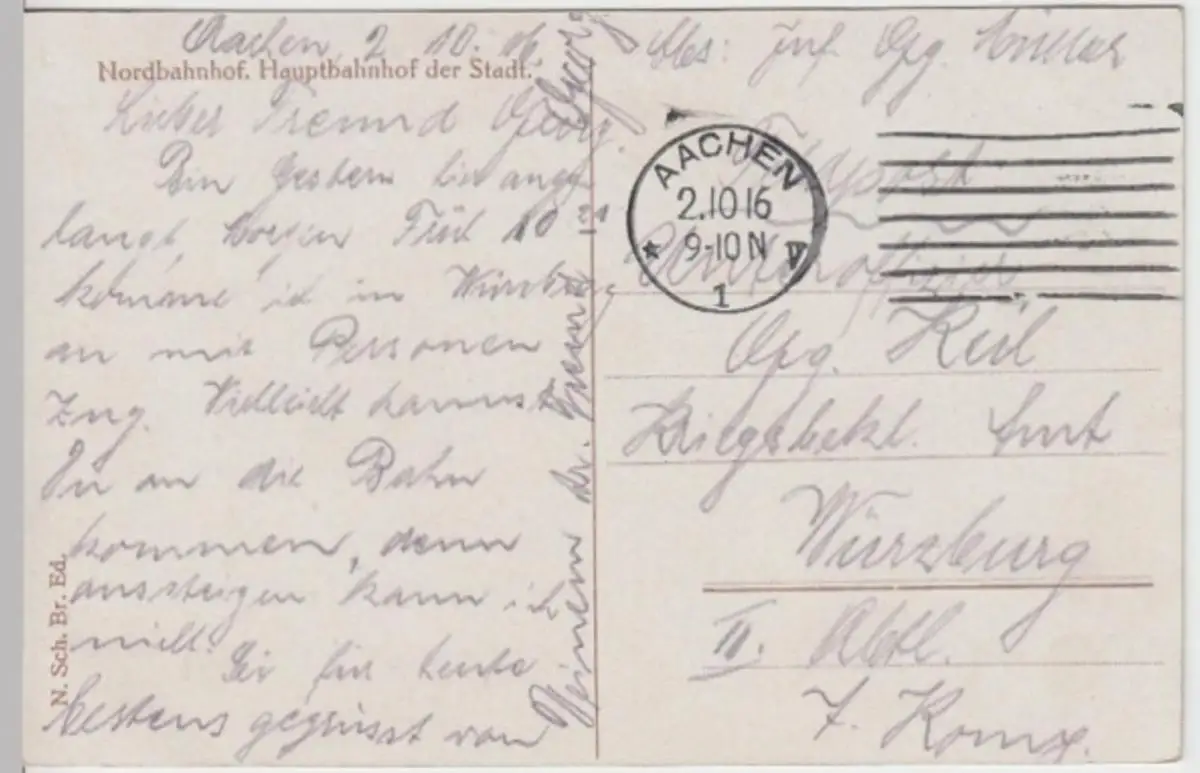 Aachen, 2 10. 16
Nordbahnhof. Hauptbahnhof der Stadt.
Lieber Freund Georg.
Bin Gestern hier ange
langt, Morgen Früh 10
komme ich in Würzburg
an mit Personen
Zug. Vielleicht kannst
Du an die Bahn
kommen, denn
aussteigen kann ich
nicht.
für heute
bestens gegrüsst von
Deinem Freund Georg
N. Sch. Br. Ed.
Abs: Inf. Müller
Feldpost
AACHEN
2.10 16
9-10 N
1
Unteroffizier
Keil
Kriegsbekl. Amt
Würzburg
II. Abtl.
7. Komp.